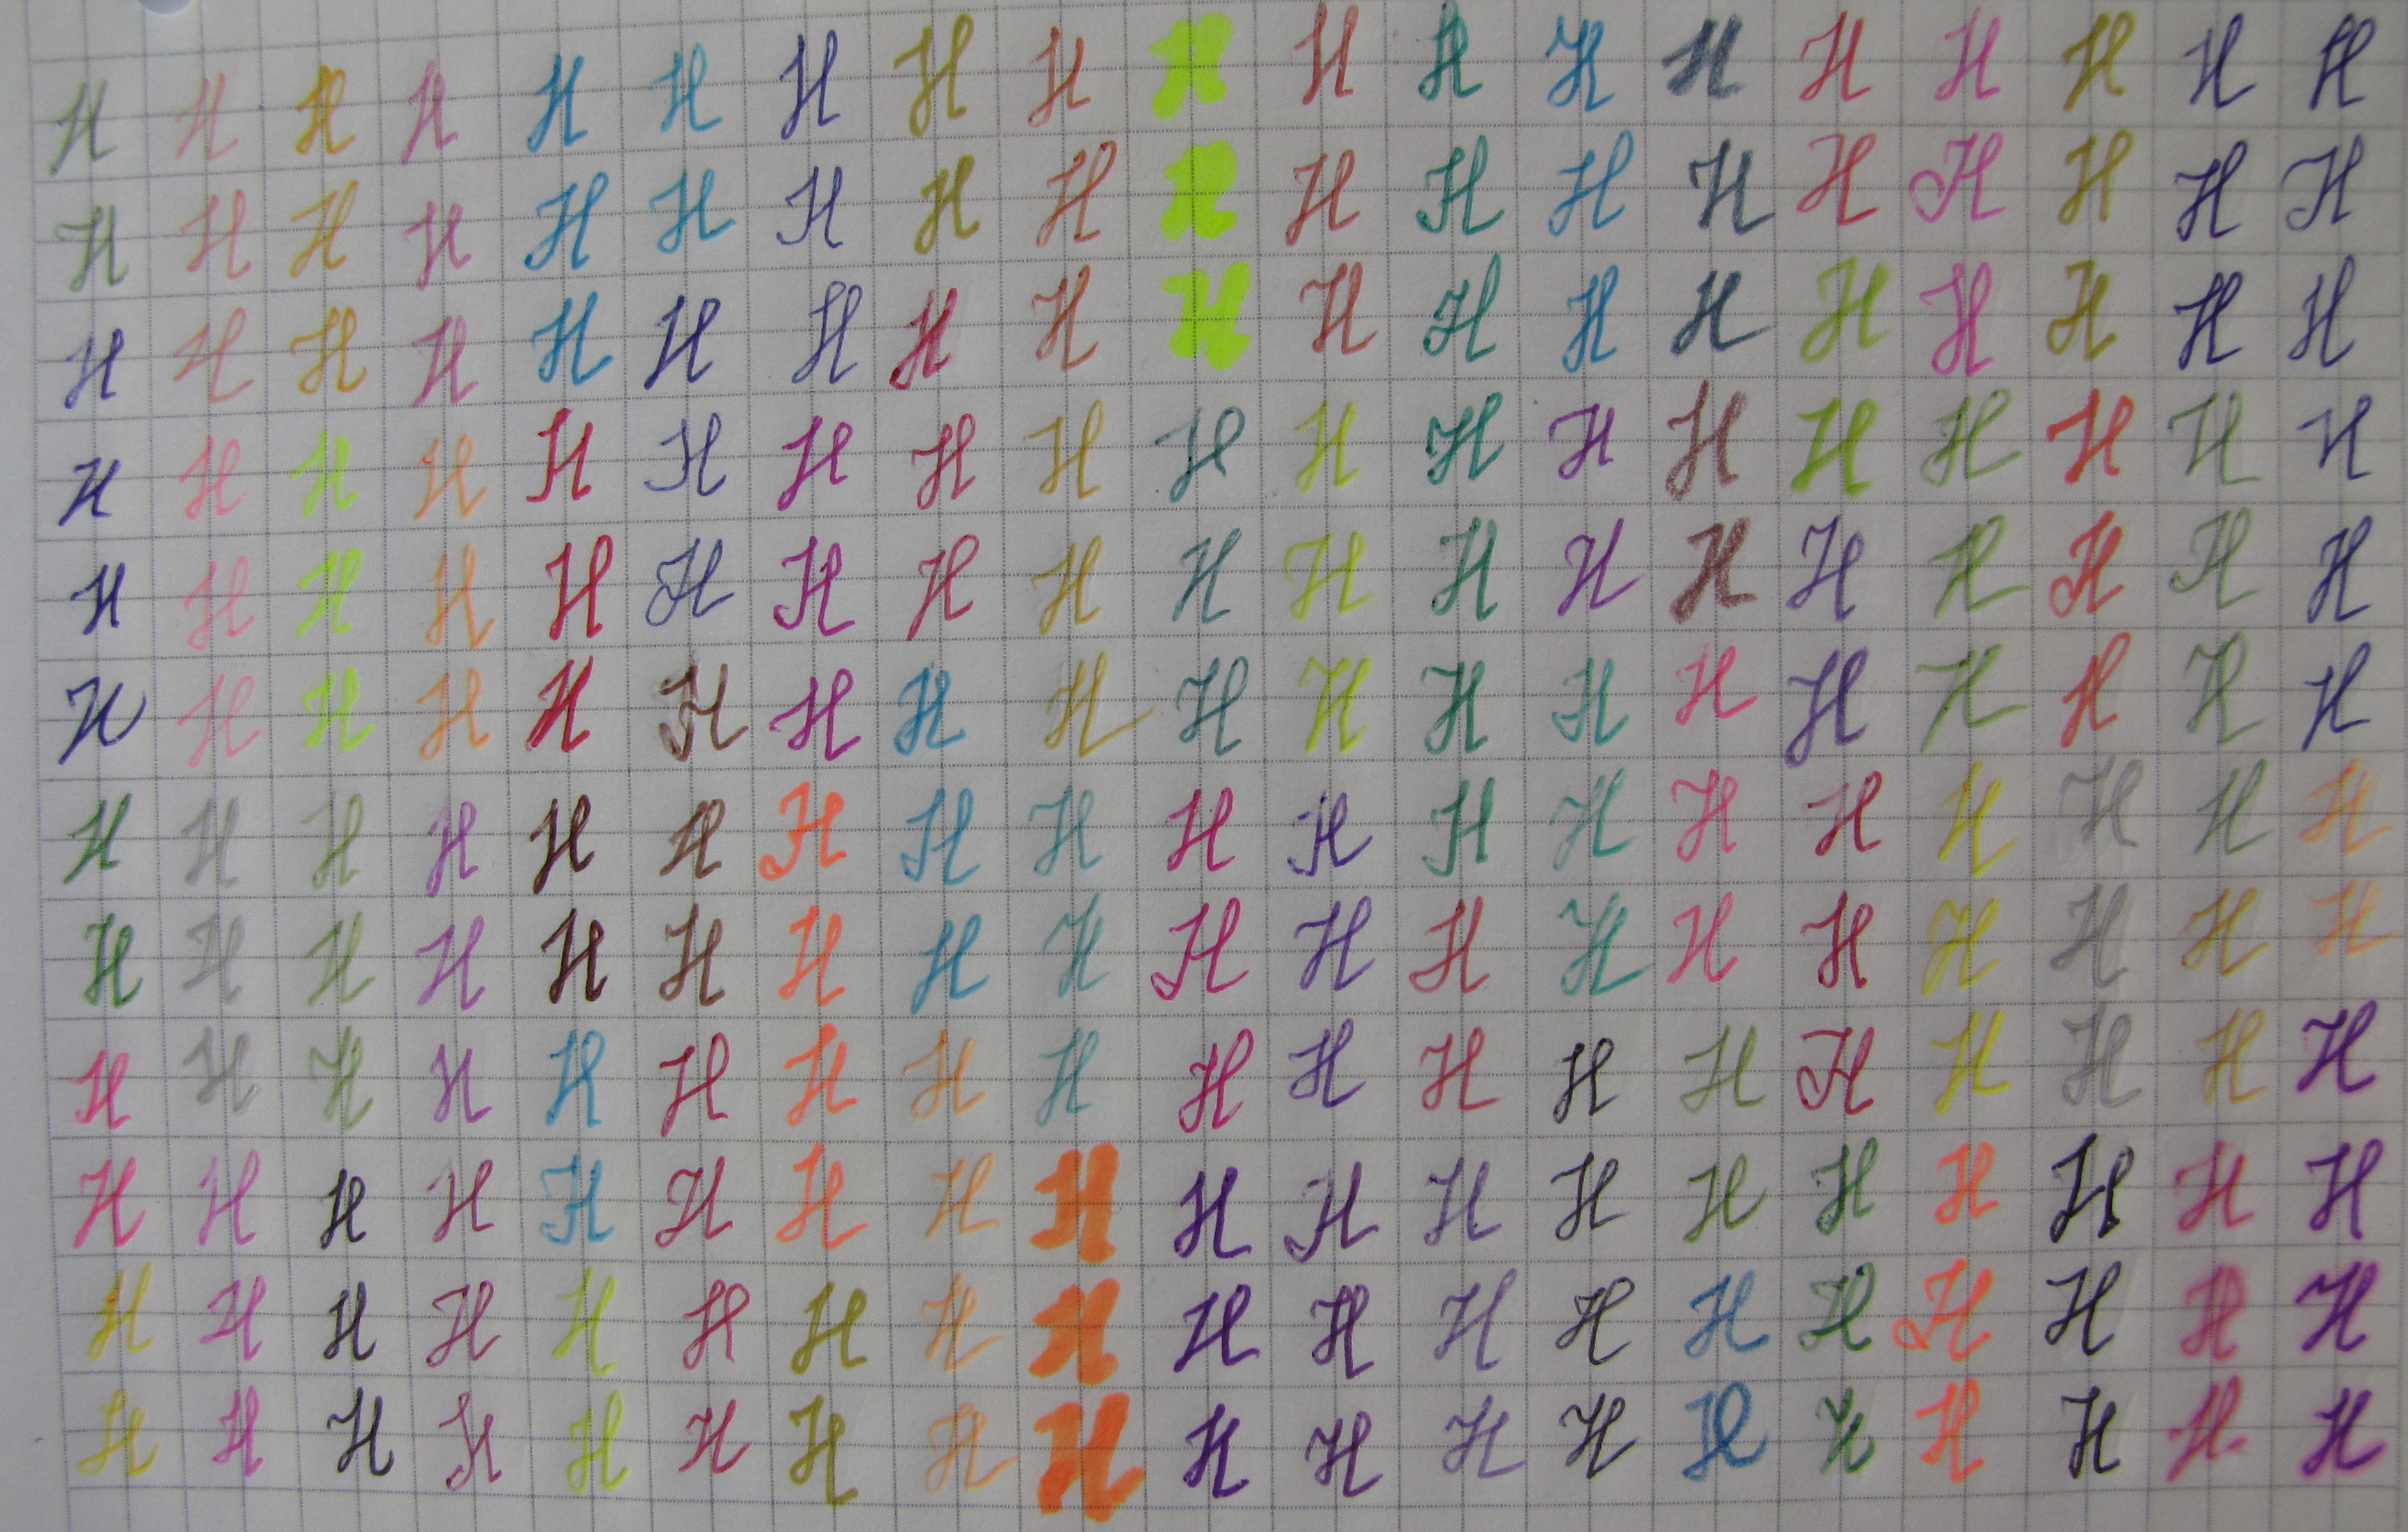 H H H H H H H H H H H H H H H H H H H
H H H H H H H H H H H H H H H H H H H
H H H H H H H H H H H H H H H H H H H
H H H H H H H H H H H H H H H H H H H
H H H H H H H H H H H H H H H H H H H
H H H H H H H H H H H H H H H H H H H
H H H H H H H H H H H H H H H H H H H
H H H H H H H H H H H H H H H H H H H
H H H H H H H H H H H H H H H H H H H
H H H H H H H H H H H H H H H H H H H
H H H H H H H H H H H H H H H H H H H
H H H H H H H H H H H H H H H H H H H